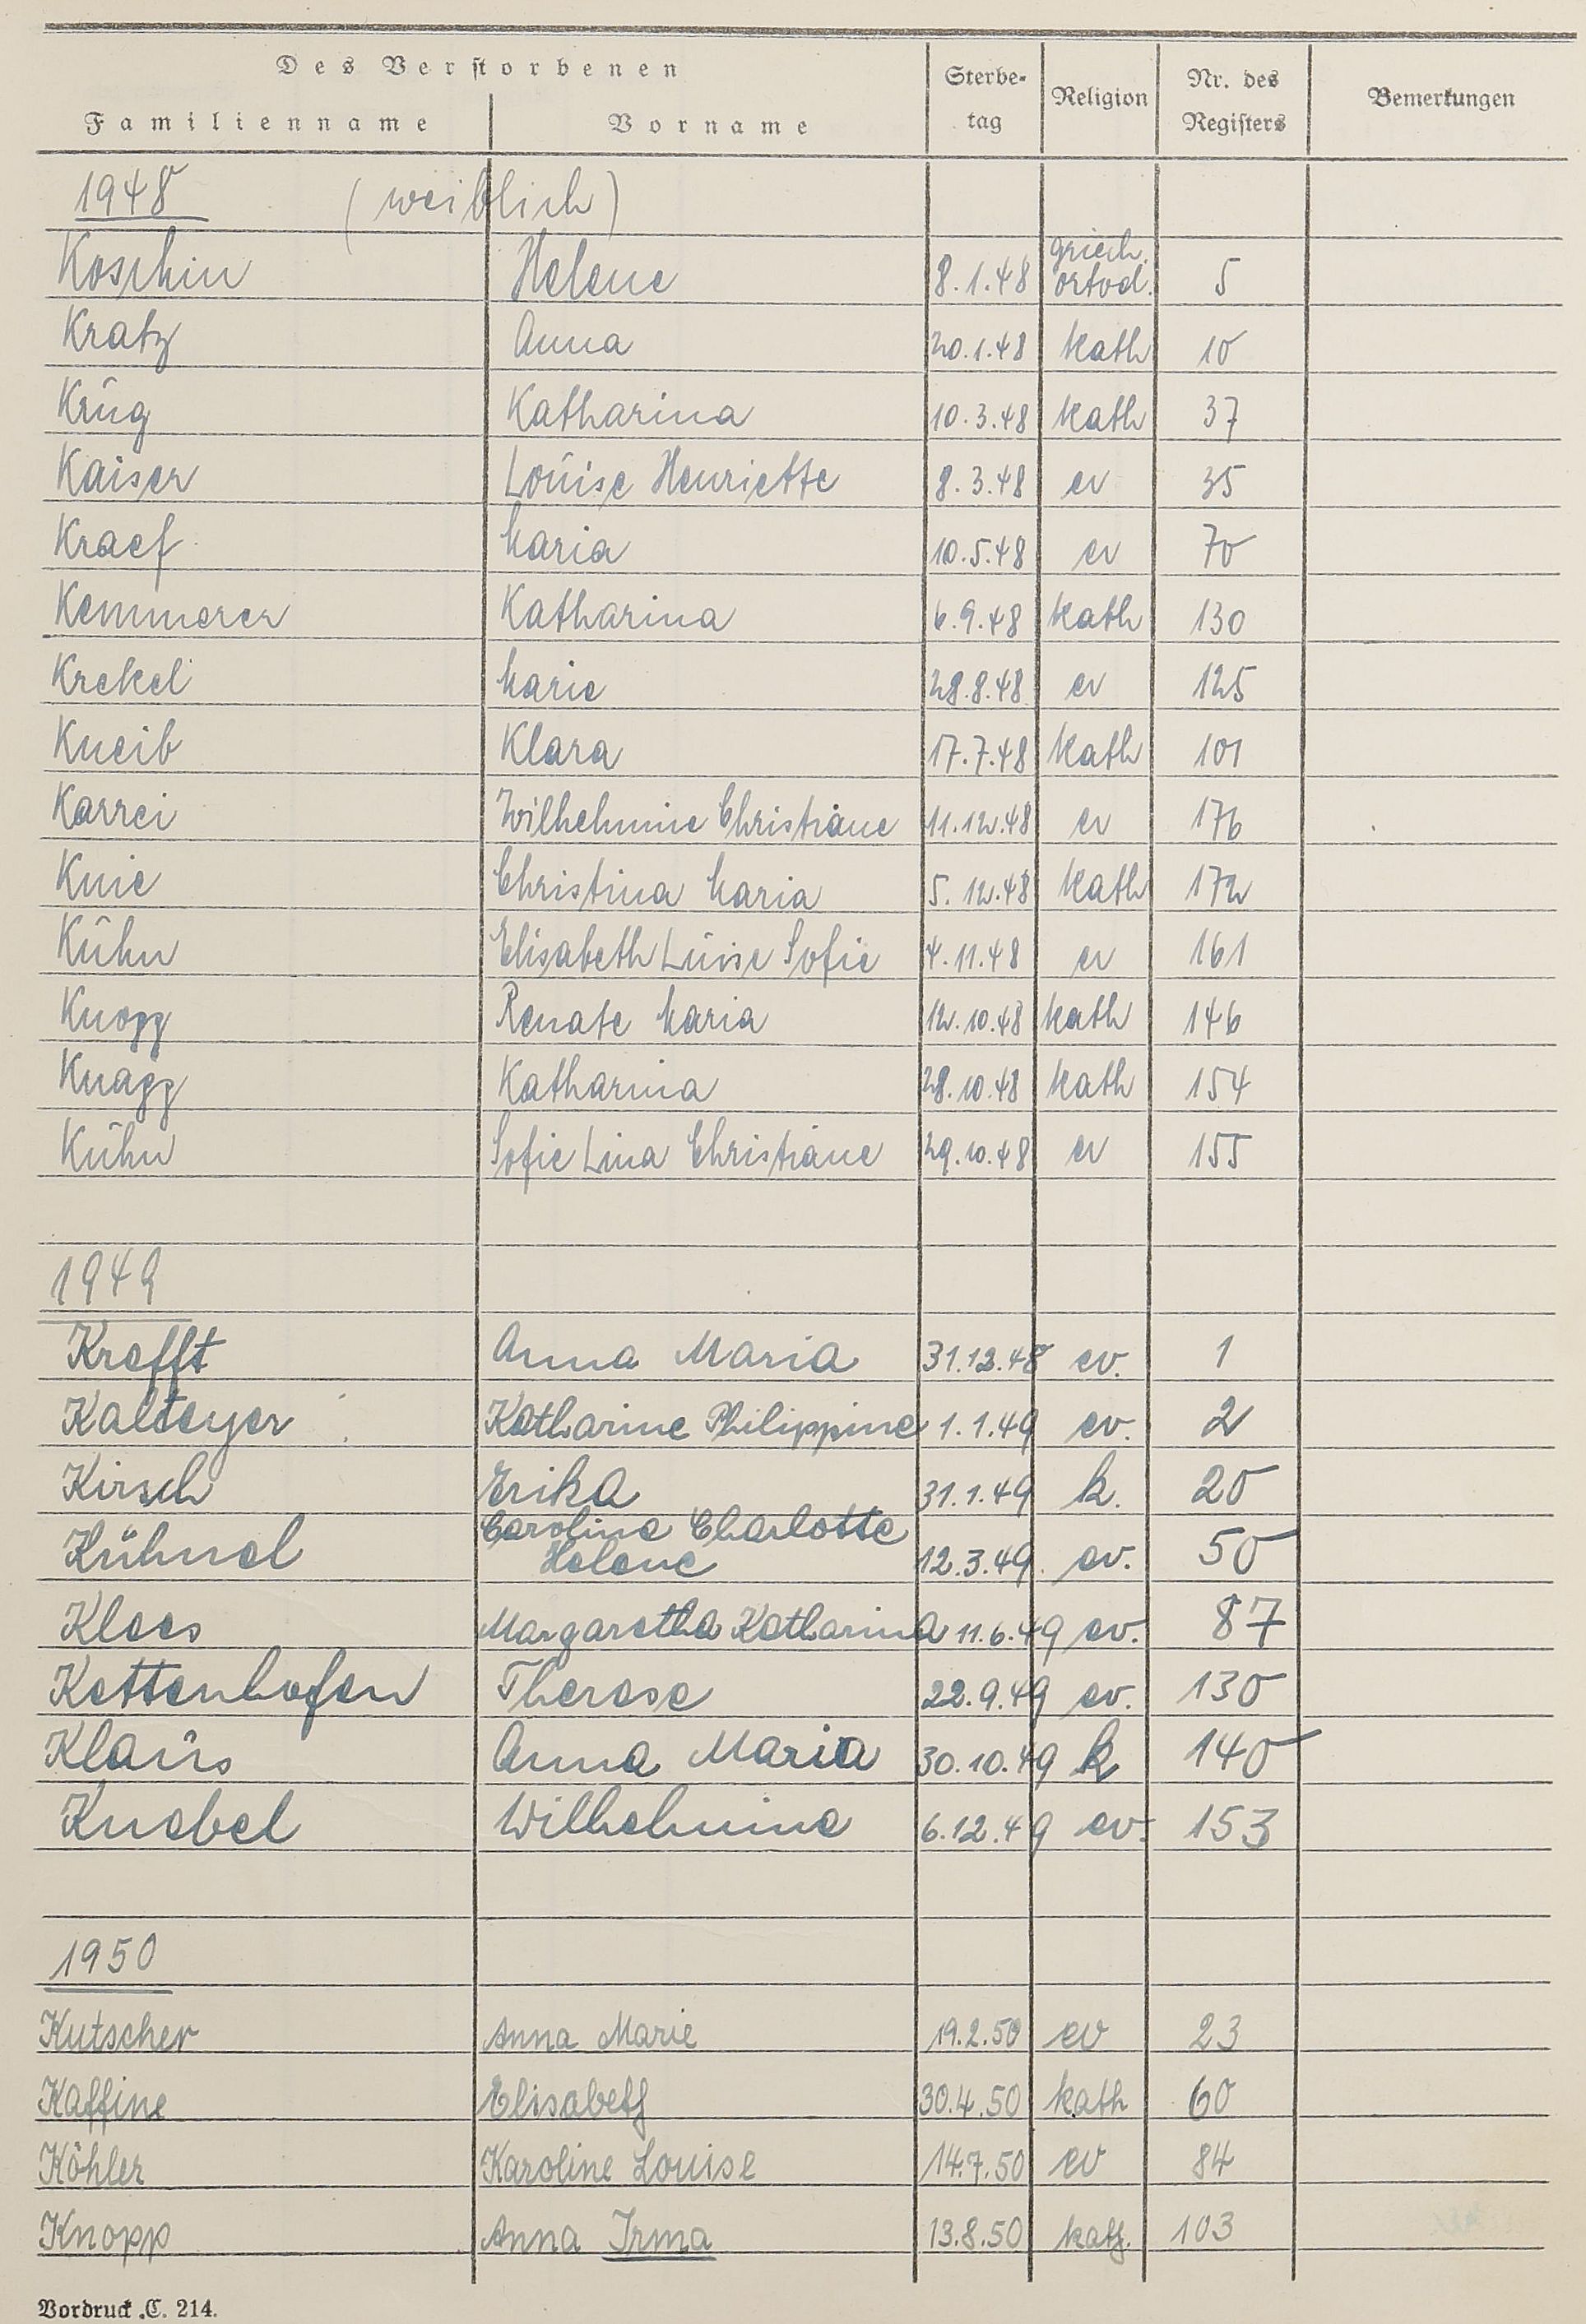 Des Verstorbenen
Familienname Vorname Sterbe-tag Religion Nr. des Registers Bemerkungen
1948 (weiblich)
Koschin Helene 8.1.48 griech. ortod. 5
Kratz Anna 20.1.48 kath 10
Krüg Katharina 10.3.48 kath 37
Kaiser Loüise Henriette 8.3.48 ev 35
Kraef Maria 10.5.48 ev 70
Kemmerer Katharina 6.9.48 kath 130
Krekel Marie 28.8.48 ev 125
Kneib Klara 17.7.48 kath 101
Karrei Wilhelmine Christiane 11.12.48 ev 176
Knie Christina Maria 5.12.48 kath 172
Kühn Elisabeth Luise Sofie 4.11.48 ev 161
Knogg Renate Maria 12.10.48 kath 146
Knagg Katharina 28.10.48 kath 154
Kühn Sofie Lina Christiane 29.10.48 ev 155
1949
Krafft Anna Maria 31.12.48 ev. 1
Kalteyer Katharine Philippine 1.1.49 ev. 2
Kirsch Erika 31.1.49 k. 20
Kühnel Caroline Charlotte Helene 12.3.49. ev. 50
Klees Margaretha Katharina 11.6.49 ev. 87
Kettenhofen Therese 22.9.49 ev. 130
Klaüs Anna Maria 30.10.49 k 140
Knebel Wilhelmine 6.12.49 ev. 153
1950
Kutscher Anna Marie 19.2.50 ev 23
Kaffine Elisabeth 30.4.50 kath 60
Köhler Karoline Louise 14.7.50 ev 84
Knopp Anna Irma 13.8.50 kath. 103
Vordruck C. 214.